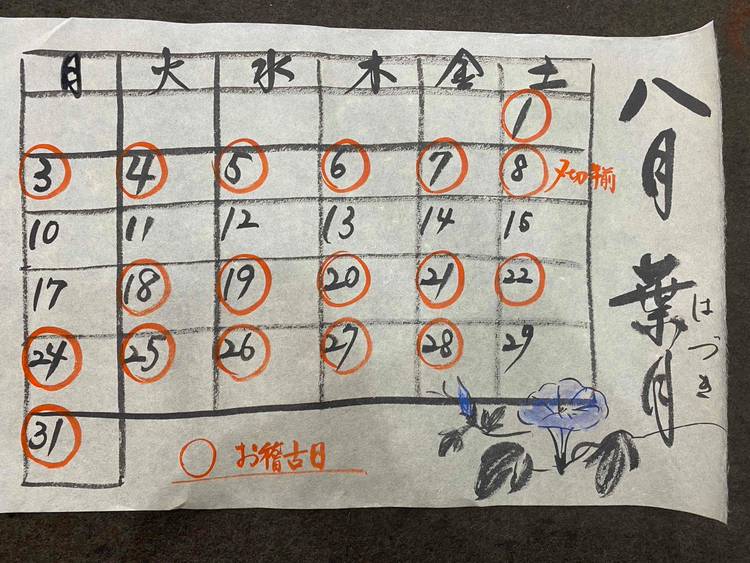 八月 葉月
はづき
月 火 水 木 金 土
1
3 4 5 6 7 8 〆切午前
10 11 12 13 14 15
17 18 19 20 21 22
24 25 26 27 28 29
31
○ お稽古日